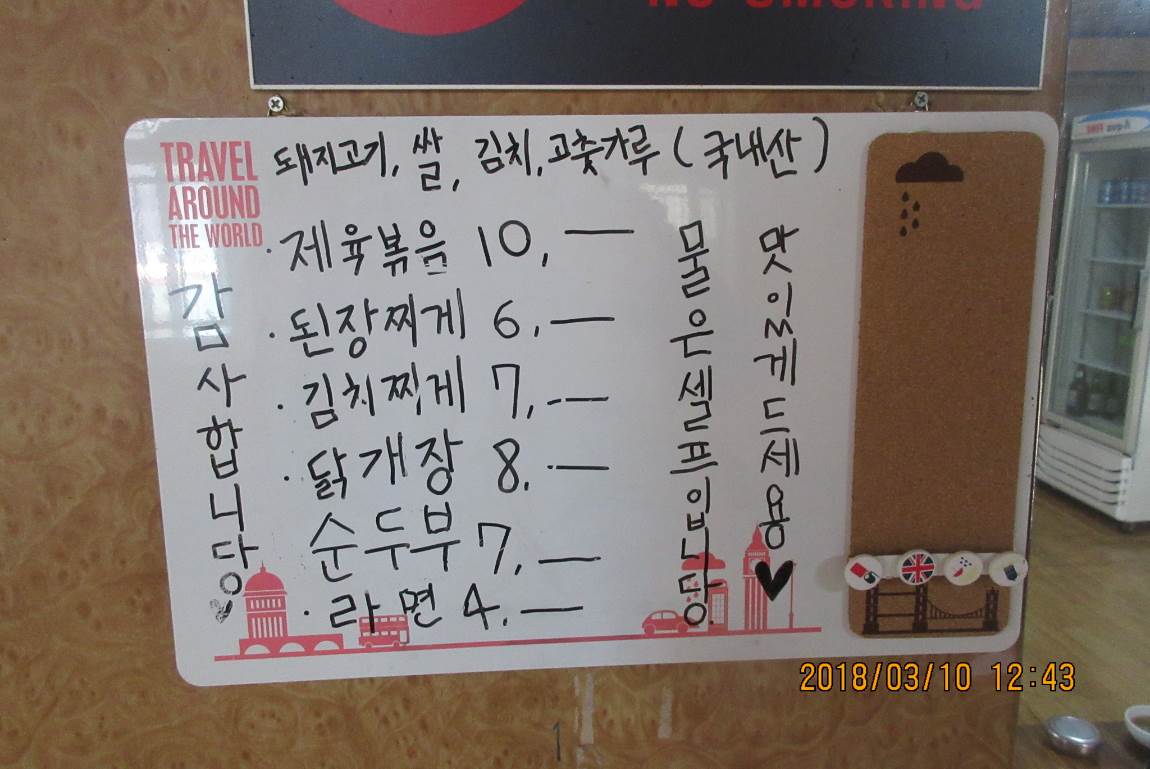 NO SMOKING
TRAVEL
AROUND
THE WORLD
돼지고기, 쌀, 김치, 고춧가루 (국내산)
· 제육볶음 10,—
· 된장찌게 6,—
· 김치찌게 7,—
· 닭개장 8,—
순두부 7,—
· 라면 4,—
감사합니당
물은셀프입니당
맛있게드세용♥
2018/03/10 12:43
1